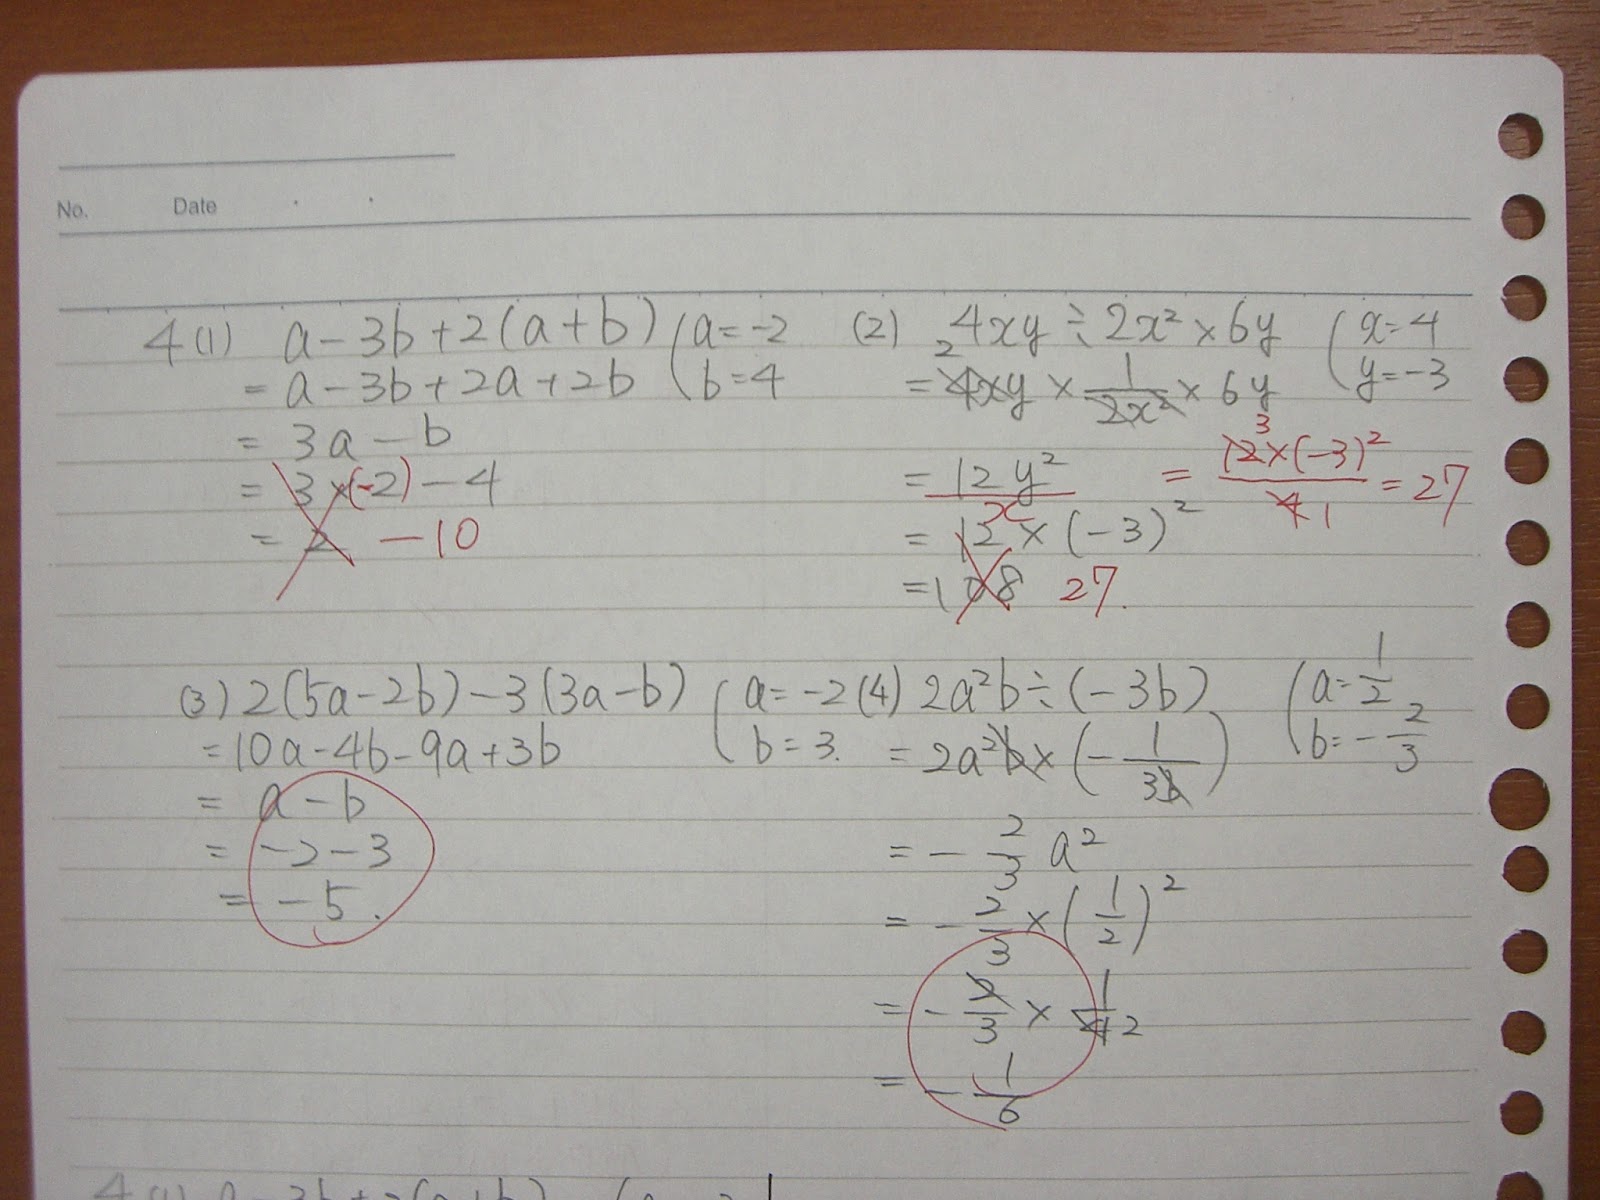 No. Date
4(1) a-3b+2(a+b) (a=-2 b=4
= a-3b+2a+2b
= 3a-b
= 3×(-2)-4
= 2 -10
(2) 4xy÷2x²×6y (x=4 y=-3
= 4xy × 1/2x² × 6y 2
= 12y²/x = 12×(-3)²/4 = 27 3 1
= 12×(-3)²
= 108 27.
(3) 2(5a-2b)-3(3a-b) (a=-2 b=3.
= 10a-4b-9a+3b
= a-b
= -2-3
= -5.
(4) 2a²b÷(-3b) (a=1/2 b=-2/3
= 2a²b×(-1/3b)
= -2/3 a²
= -2/3 × (1/2)²
= -2/3 × 1/4 2
= -1/6
4(1) a-3b+2(a+b)